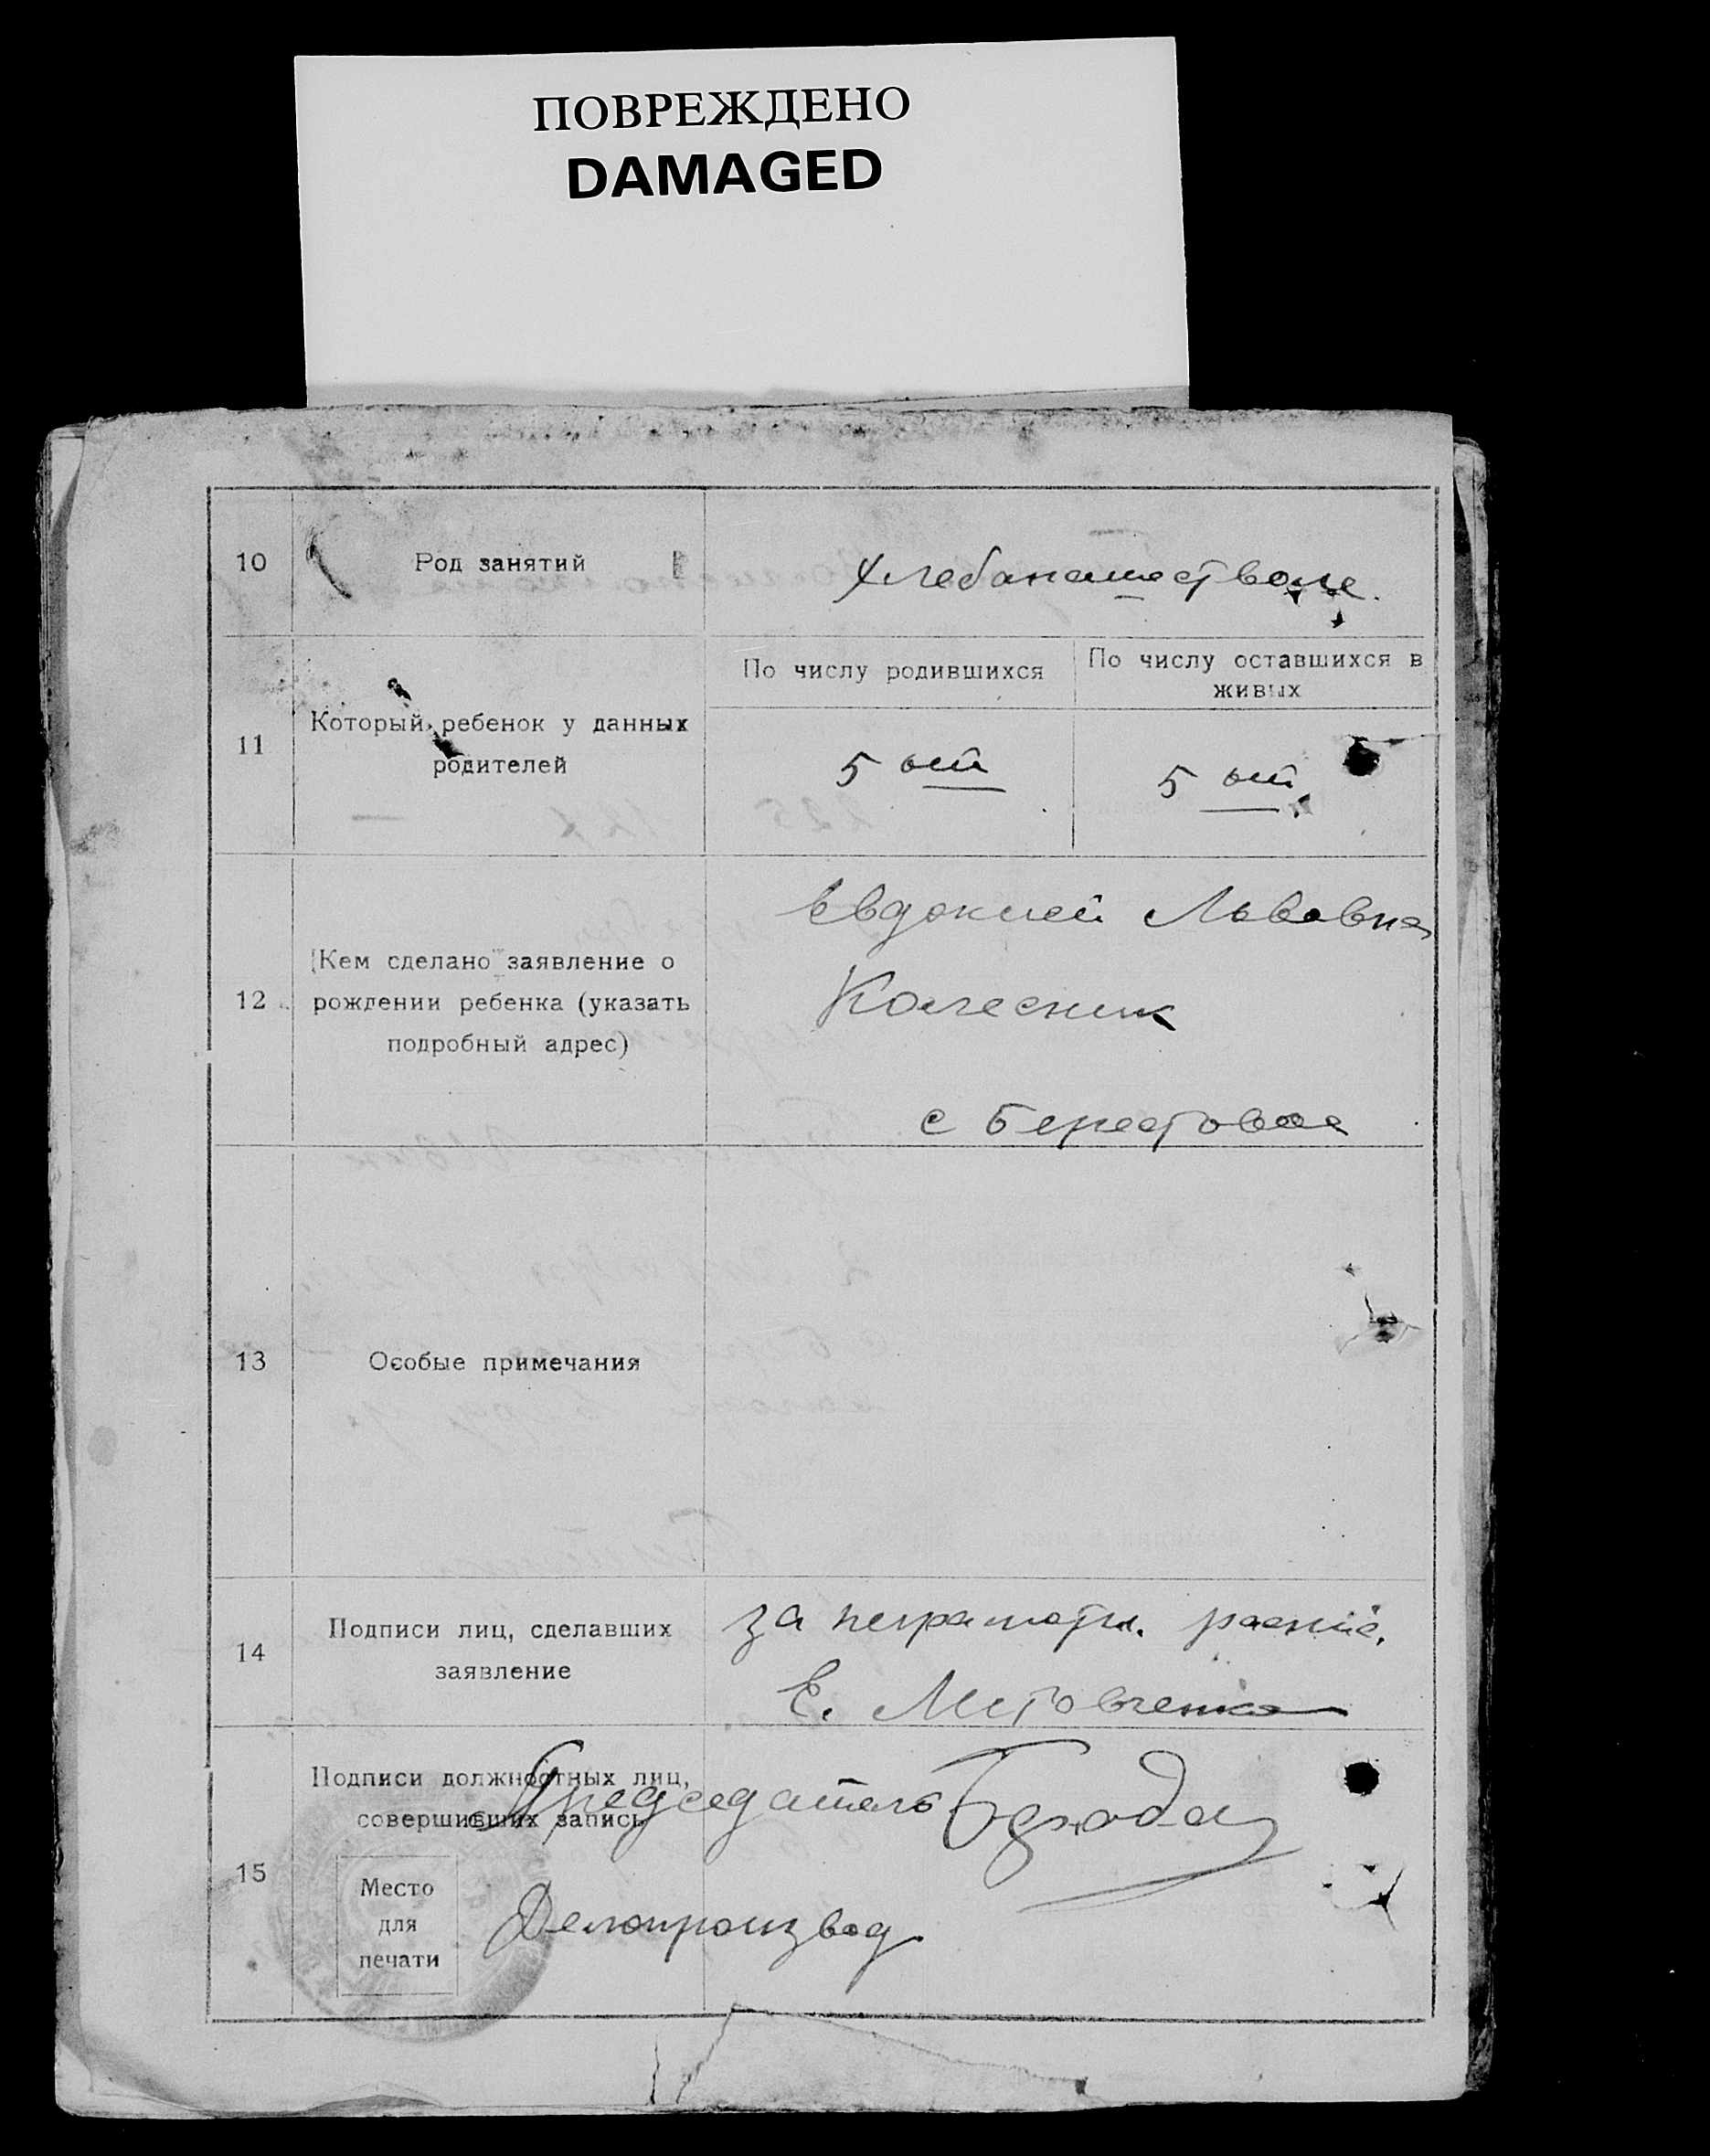 ПОВРЕЖДЕНО
DAMAGED
10
Род занятий
Хлебанашеством.
11
Который ребенок у данных
родителей
По числу родившихся
По числу оставшихся в
живых
5 ый
5 ый.
12
Кем сделано заявление о
рождении ребенка (указать
подробный адрес)
Евдокией Львовна
Колесник
с Берестовое
13
Особые примечания
14
Подписи лиц, сделавших
заявление
за неграмотн.
Е.
15
Подписи должностных лиц,
совершивших запись
Председатель
Место
для
печати
Делопроизвод